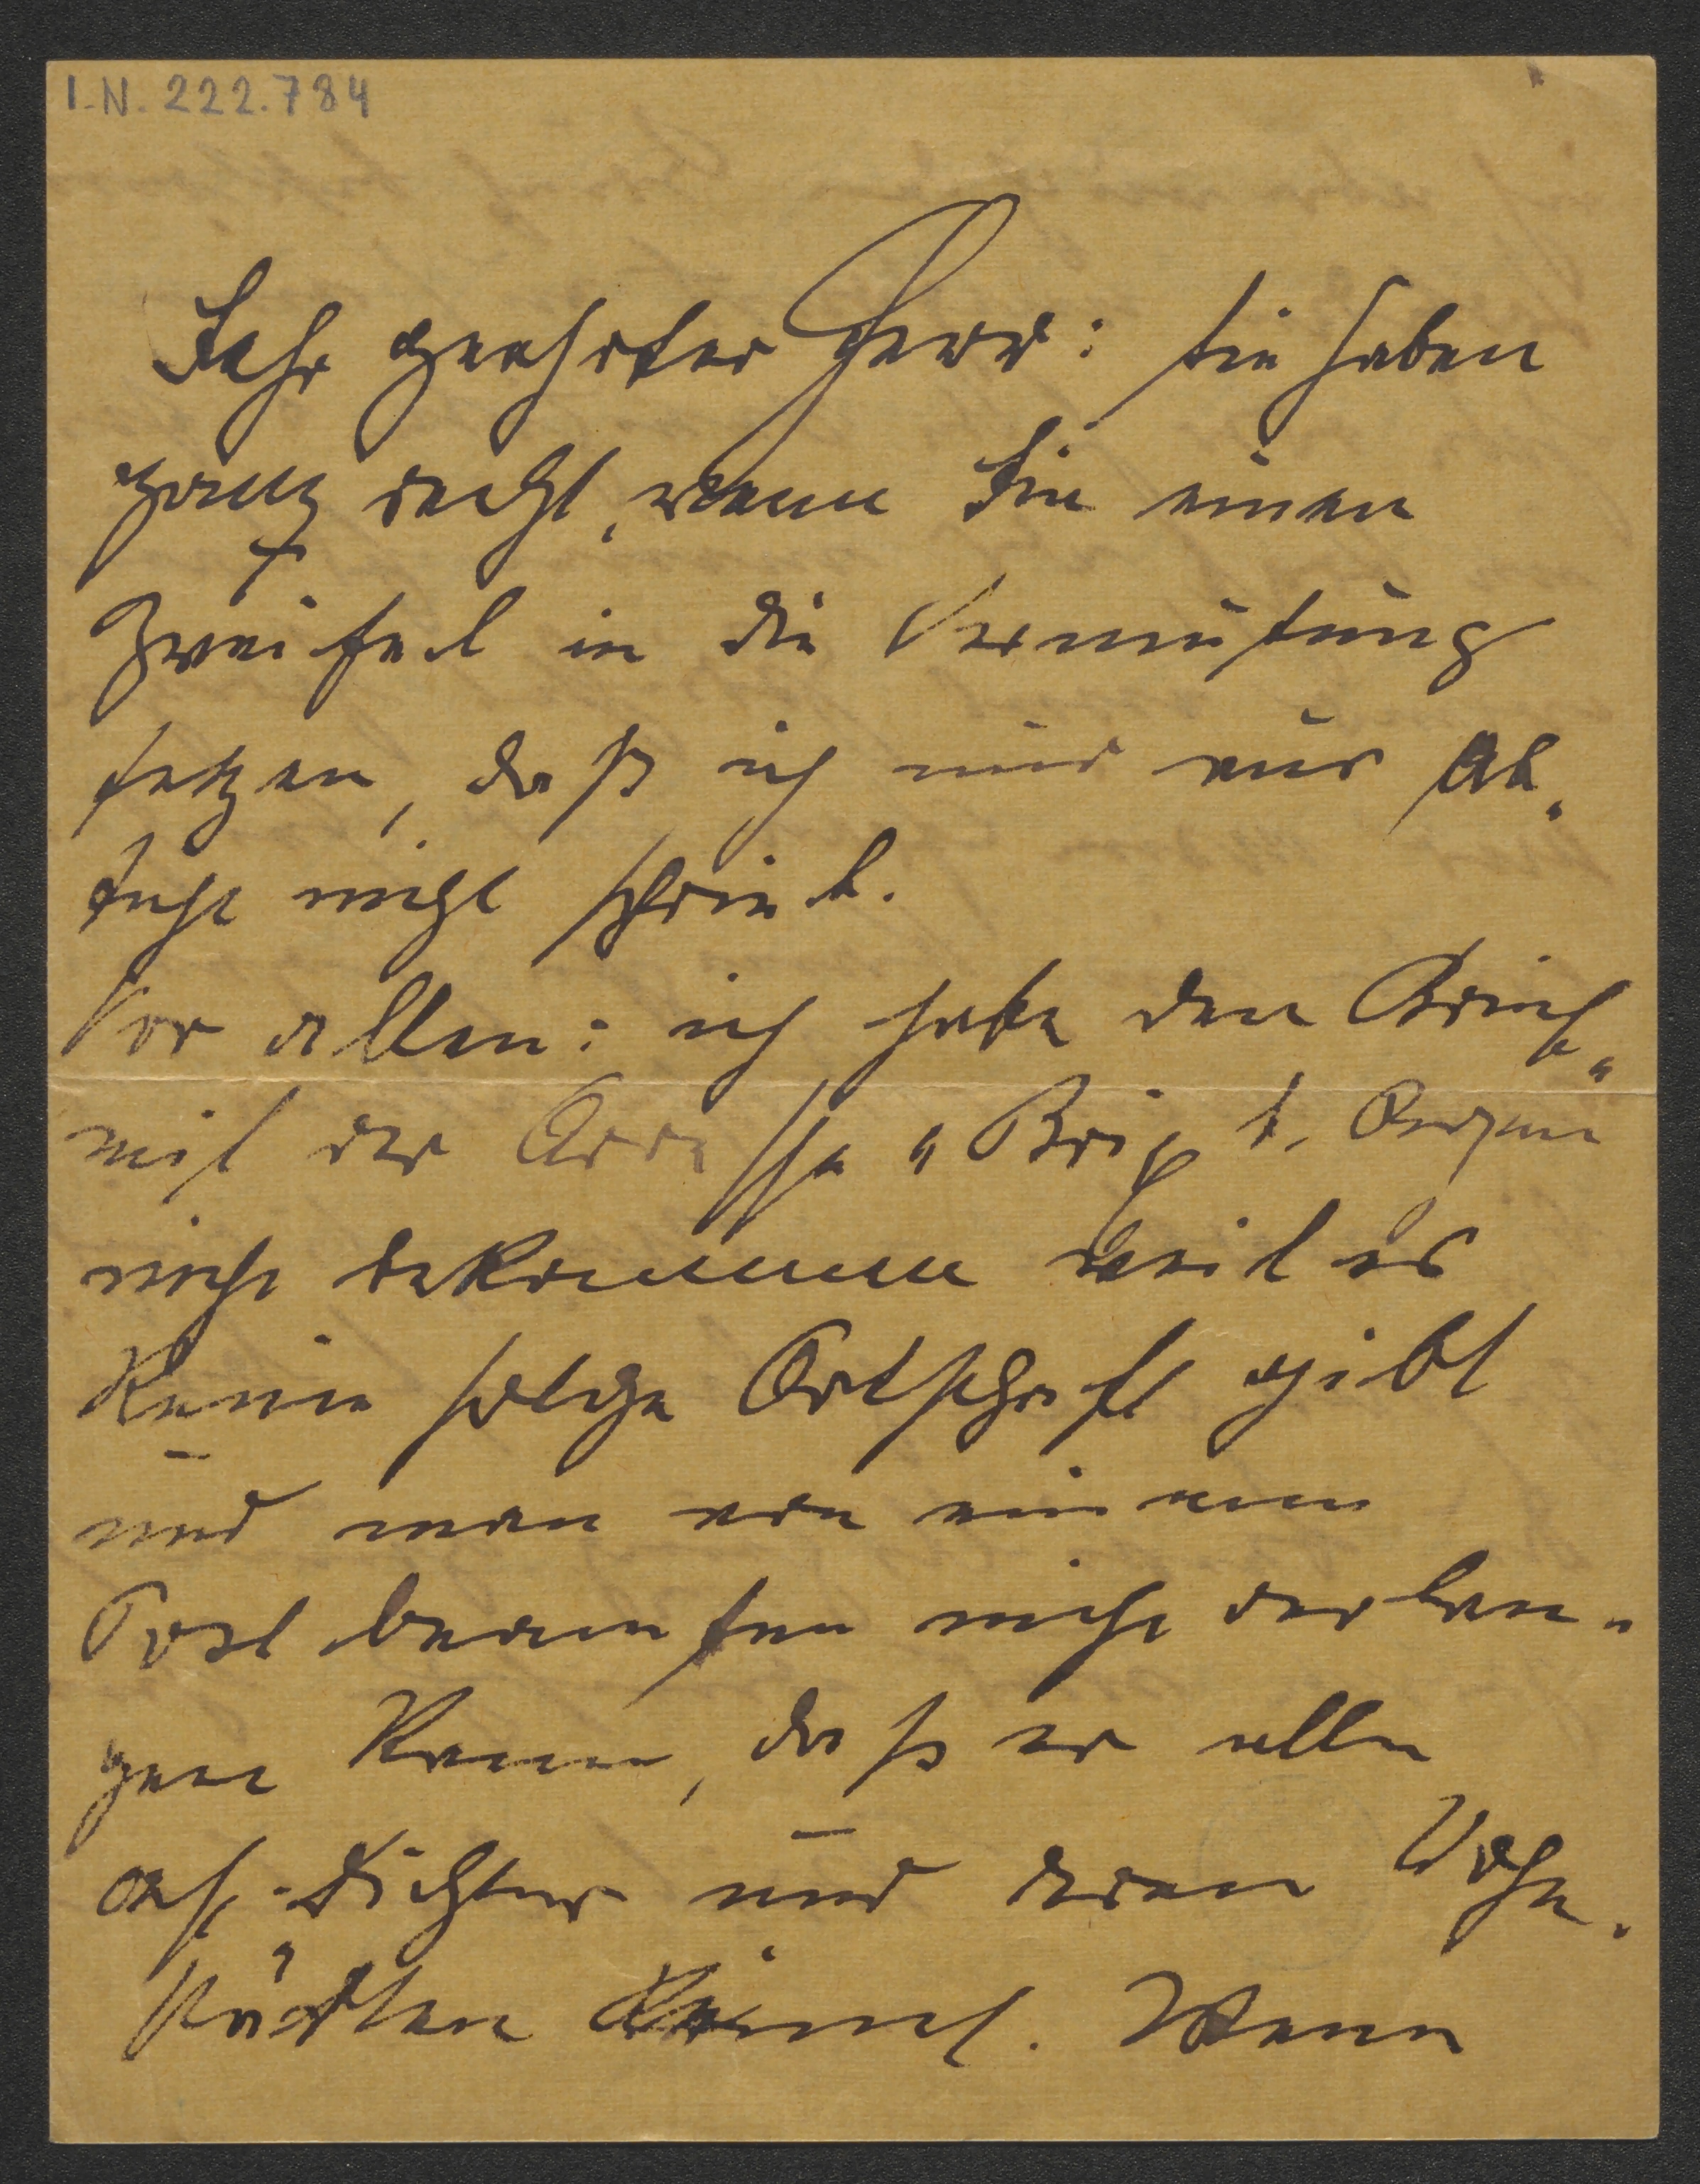 I.N. 222.784
Sehr geehrter Herr: Sie haben
ganz recht, wenn Sie einen
Zweifel in die Vermutung
setzen, daß ich nur aus Ab-
sicht nicht schrieb.
Vor allem: ich habe den Brief
mit der Adresse „Brix b.
nicht bekommen weil es
keine solche Ortschaft gibt
und man von einem
Postbeamten nicht verlan-
gen kann, daß er alle
öst. Dichter und deren Wohn-
stätten kennt. Wenn